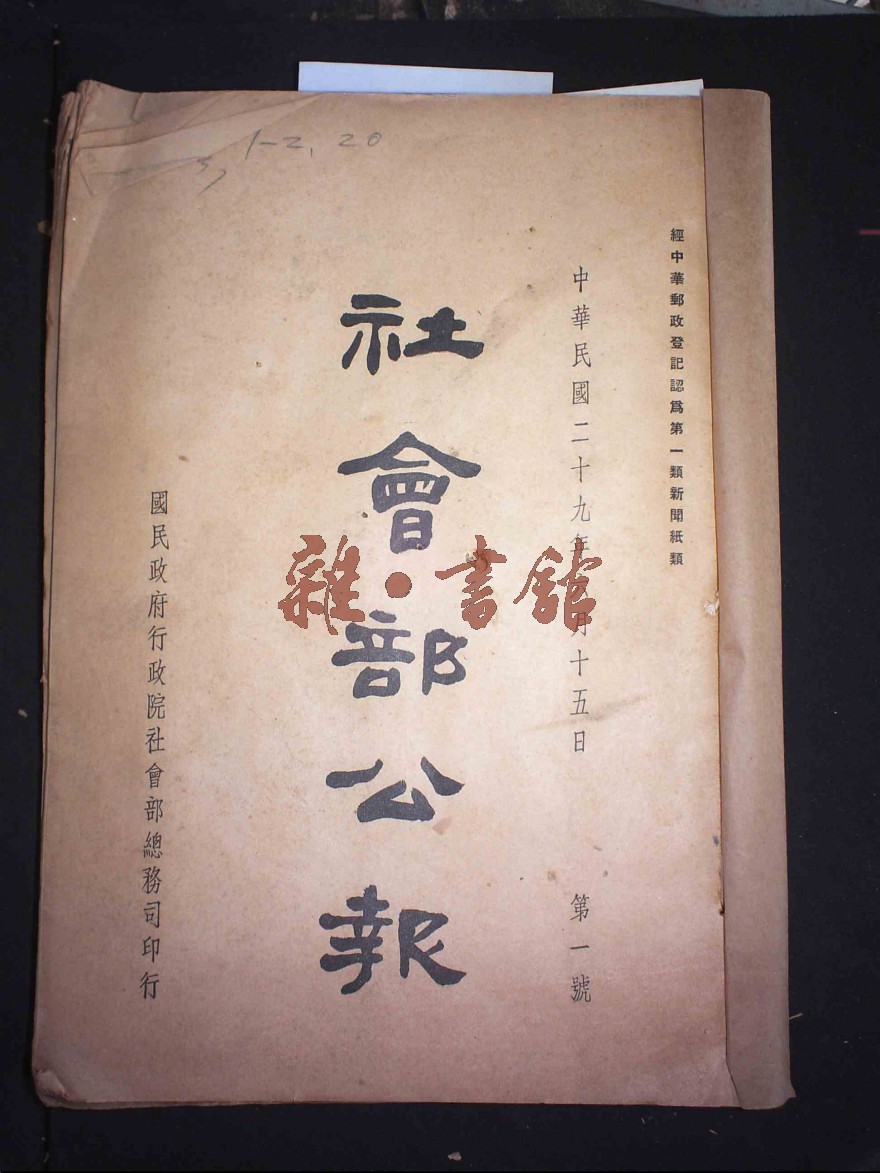 經中華郵政登記認爲第一類新聞紙類
中華民國二十九年 月十五日 第一號
社會部公報
國民政府行政院社會部總務司印行
1-2, 20
雜·書館